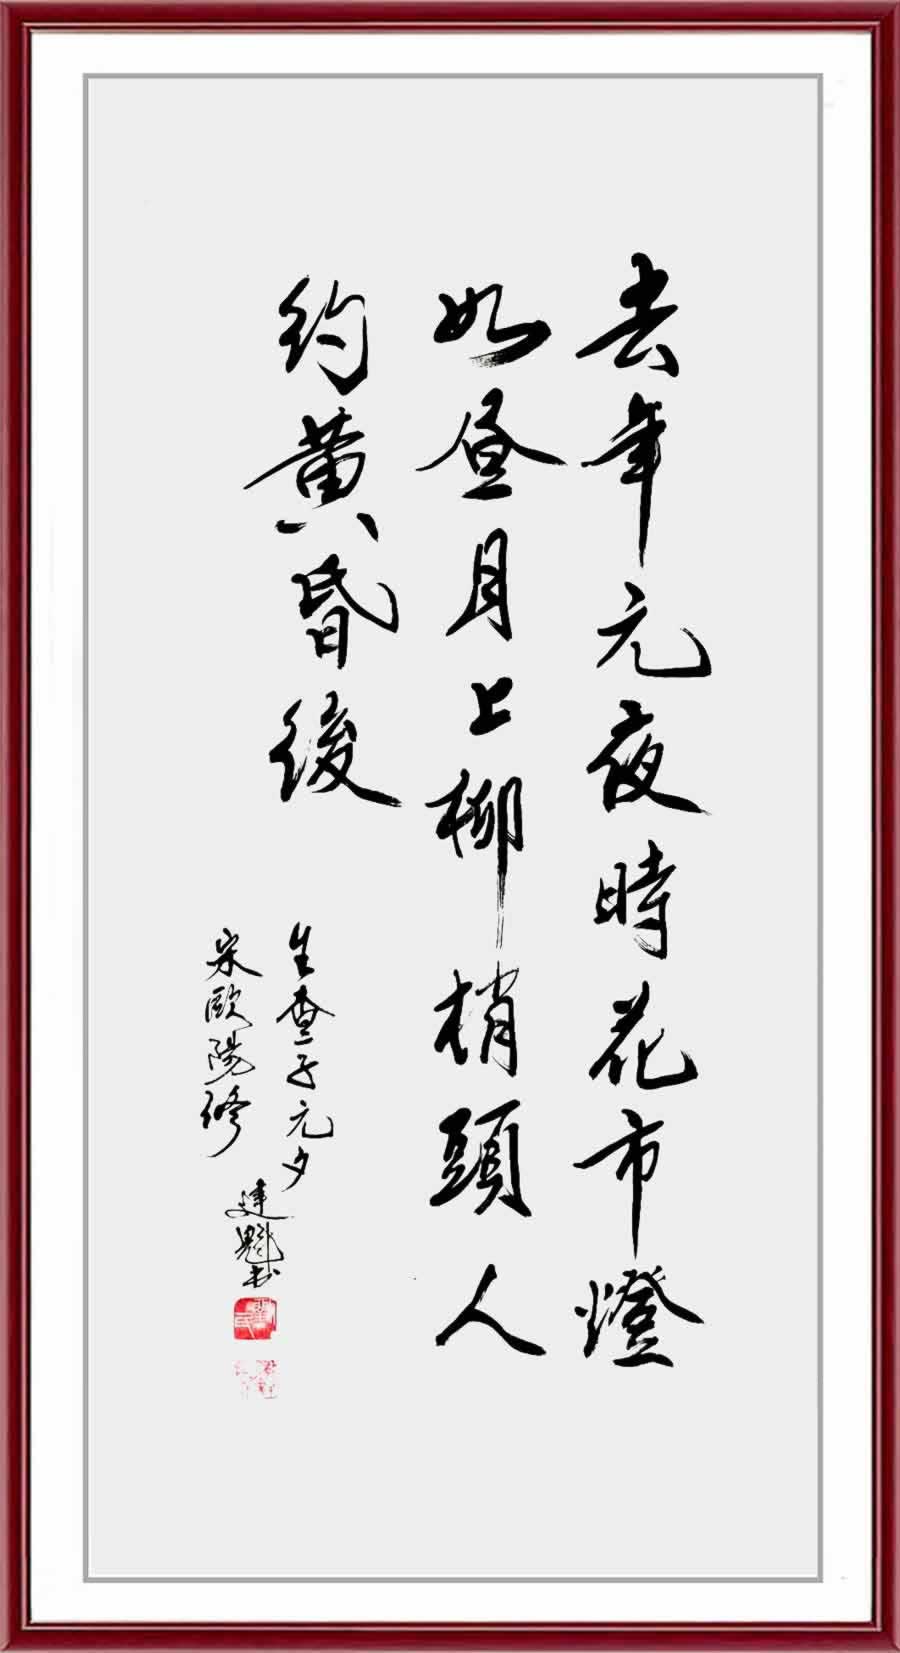 去年元夜時花市燈
如昼月上柳梢頭人
约黄昏後
生查子元夕
宋歐陽修
建魁书